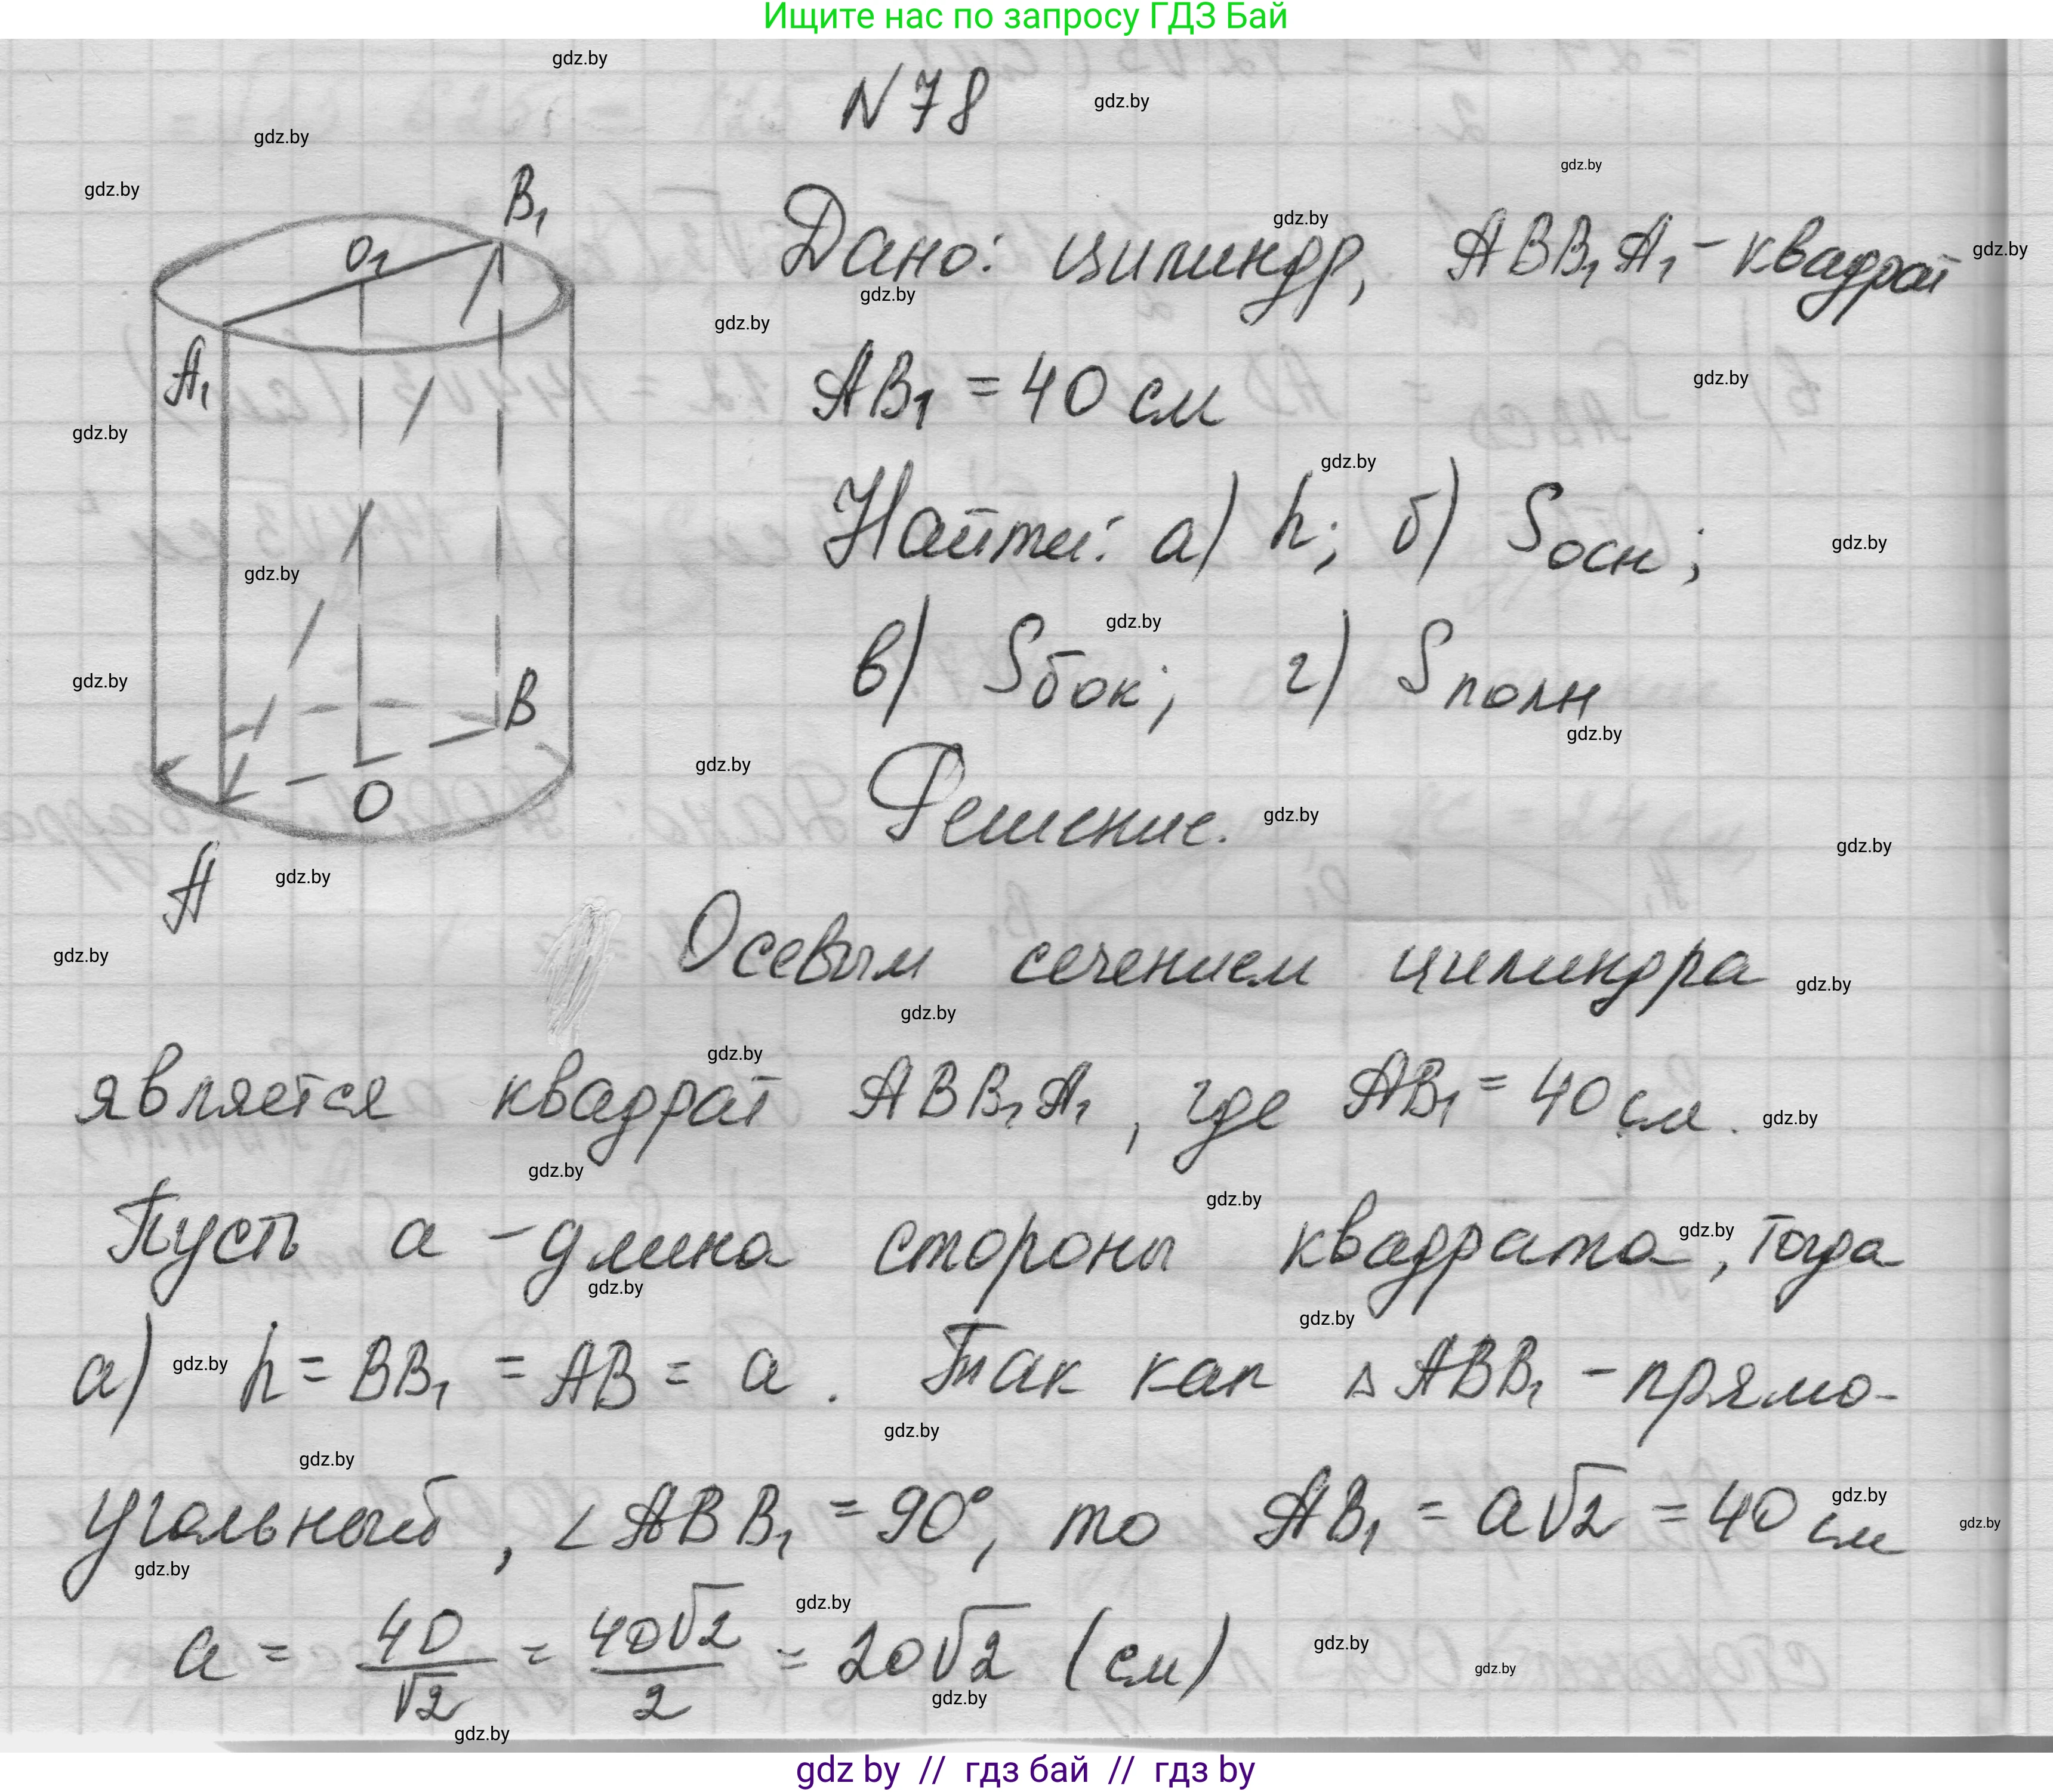 Ищите нас по запросу ГДЗ Бай
N 78
Дано: цилиндр, ABB₁A₁ - квадрат
AB₁ = 40 см
Найти: а) h; б) Sосн;
в) Sбок; г) Sполн
Решение.
B₁
O₁
A₁
B
O
A
Осевым сечением цилиндра
является квадрат ABB₁A₁, где AB₁ = 40 см.
Пусть a - длина стороны квадрата, тогда
а) h = BB₁ = AB = a. Так как △ ABB₁ - прямо-
угольный, ∠ABB₁ = 90°, то AB₁ = a√2 = 40 см
a = 40/√2 = 40√2/2 = 20√2 (см)
gdz.by
gdz by // гдз бай // гдз by